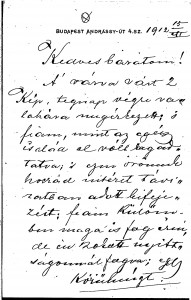 BUDAPEST ANDRÁSSY-ÚT 4.SZ. 1912 15/XII
Kedves barátom!
A várva várt 2
kép, tegnap végre va
lahára megérkezett, s
fiam, mint az egész
család el volt ragad
tatva, s ezen örömnek
hozzád intézett távi
ratban adott kifeje-
zést; fiam külöm-
ben maga is fog irni,
de én